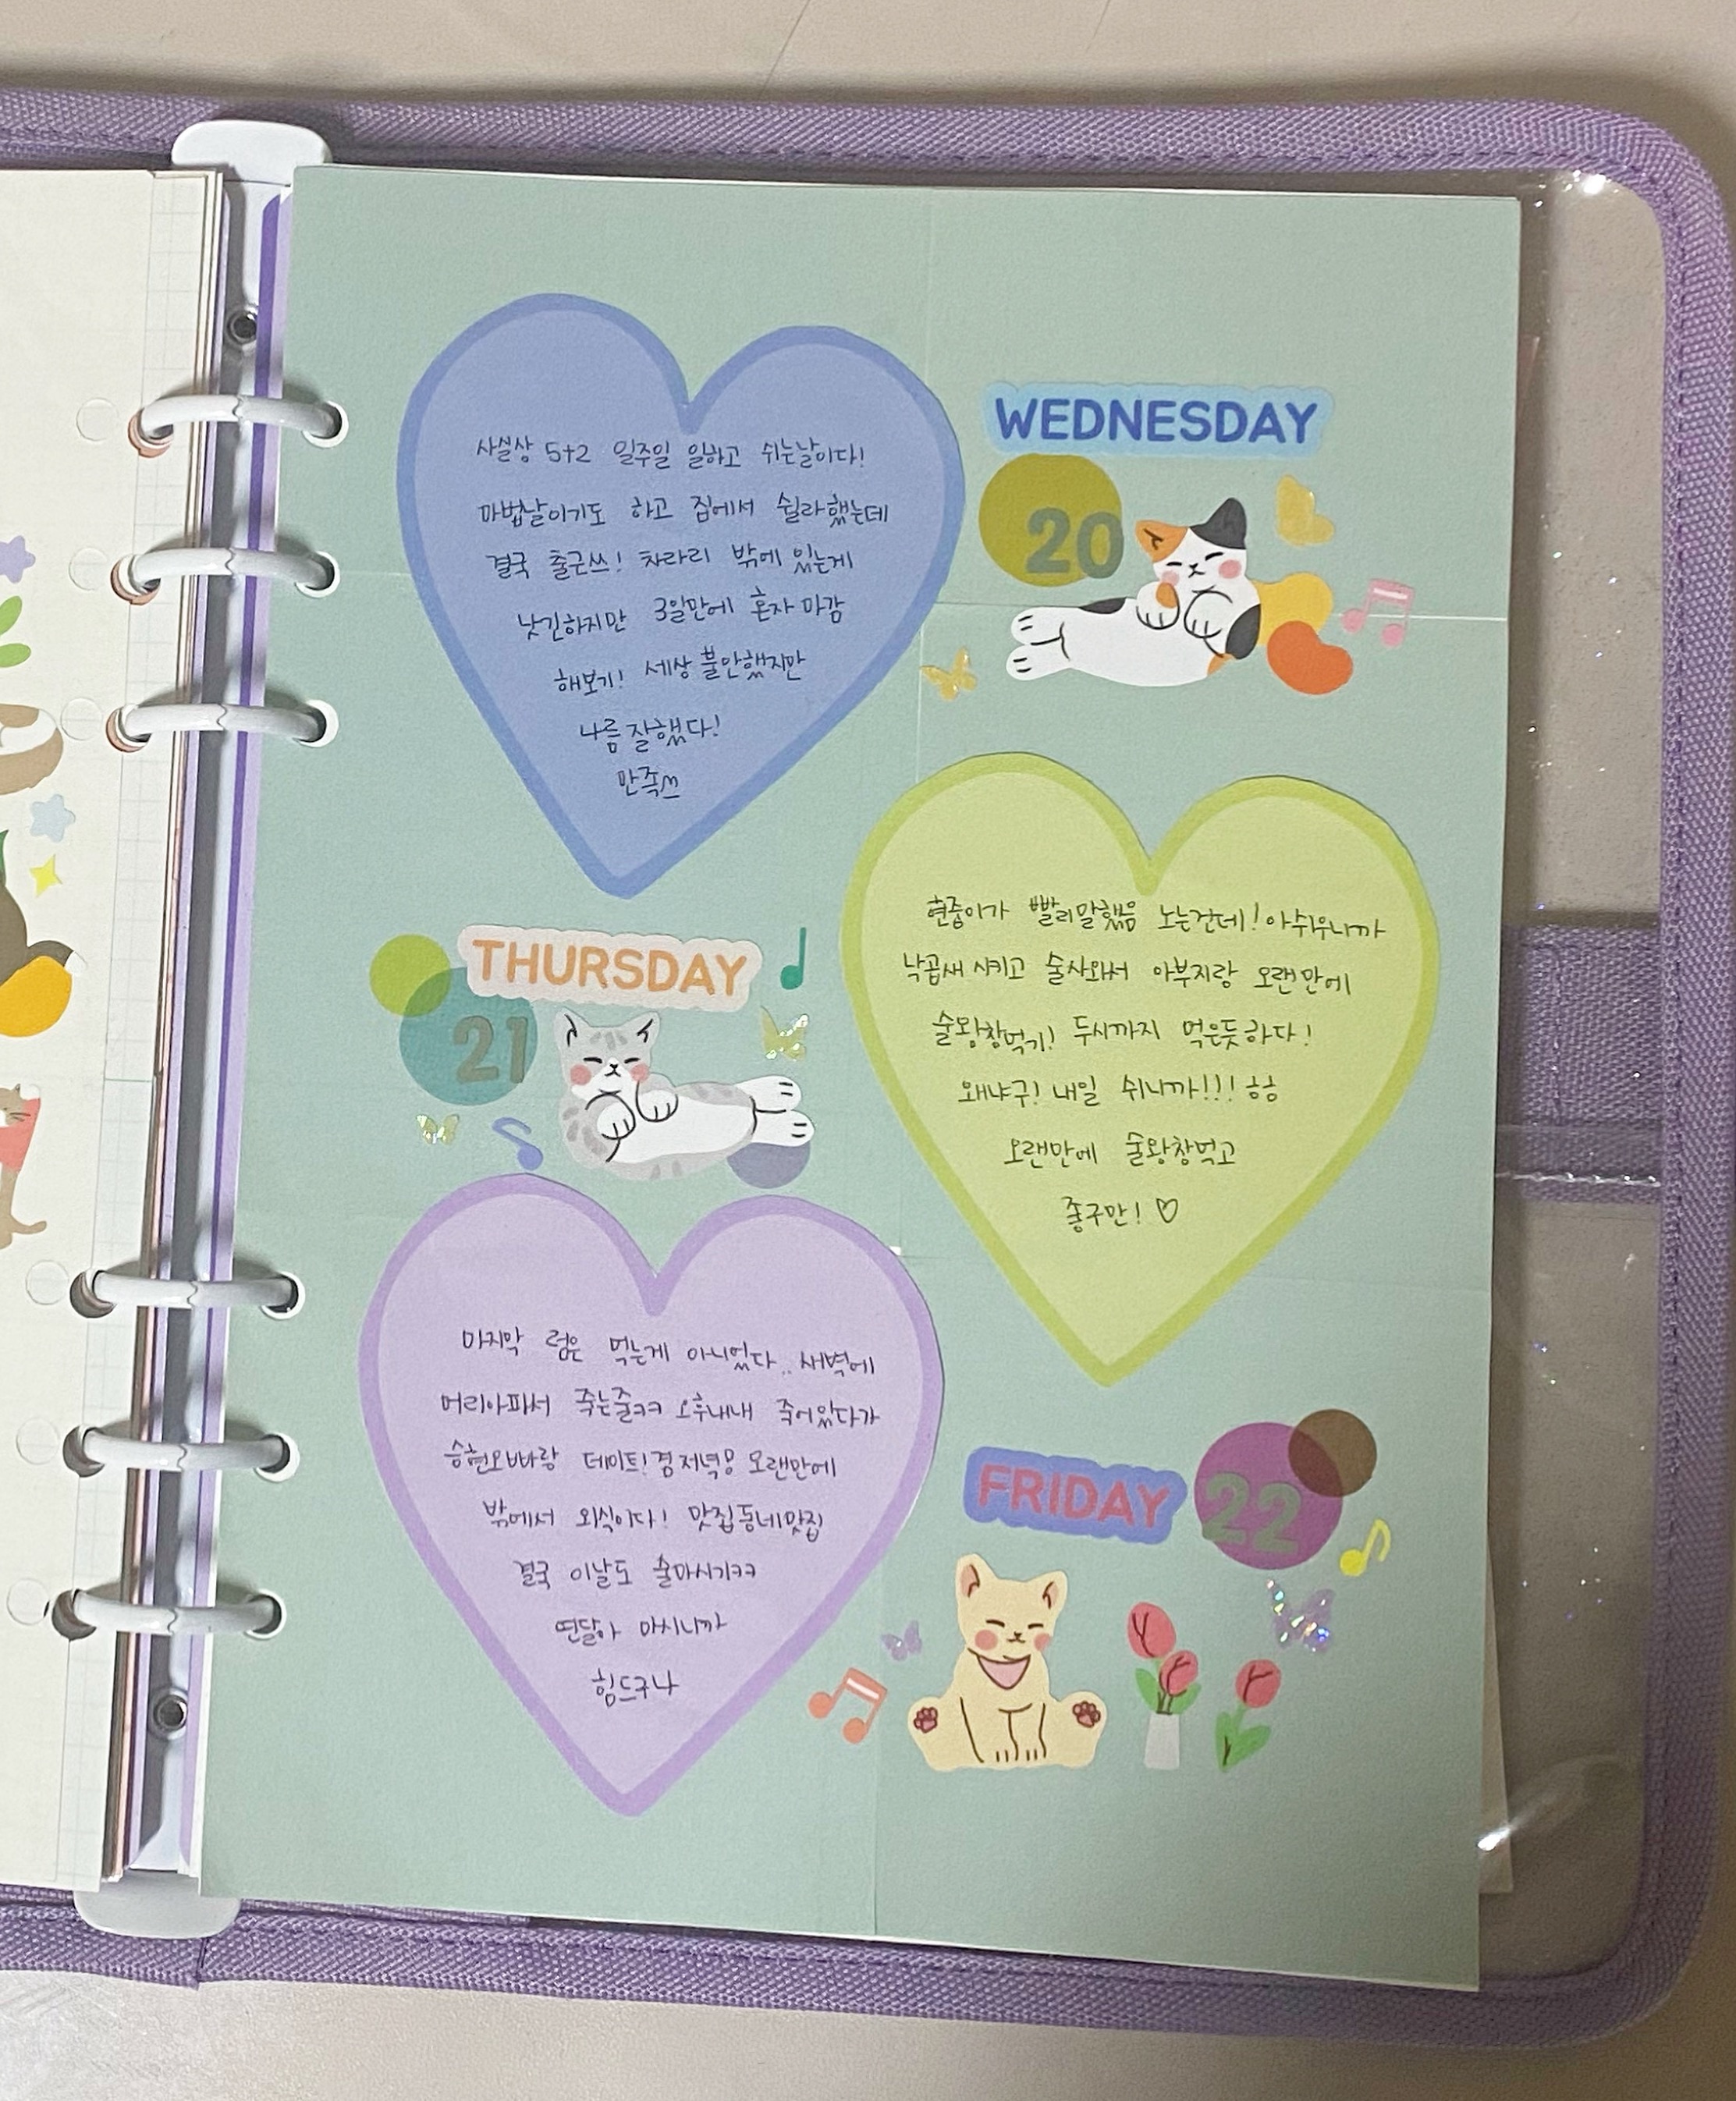 WEDNESDAY
20
사실상 5+2 일주일 일하고 쉬는날이다!
마법날이기도 하고 집에서 쉴라했는데
결국 출근쓰! 차라리 밖에 있는게
낫긴하지만 3일만에 혼자 마감
해보기! 세상 불안했지만
나름 잘했다!
만족쓰
THURSDAY
21
현중이가 빨리말했음 노는건데! 아쉬우니까
낙곱새 시키고 술사와서 아부지랑 오랜만에
술왕창먹기! 두시까지 먹은듯하다!
왜냐구! 내일 쉬니까!!! ㅎㅎ
오랜만에 술왕창먹고
좋구만! ♡
FRIDAY
22
마지막 럼은 먹는게 아니었다.. 새벽에
머리아파서 죽는줄ㅋㅋ 오후내내 죽어있다가
승현오빠랑 데이트! 겸 저녁 오랜만에
밖에서 외식이다! 맛집동네맛집
결국 이날도 술마시기ㅋㅋ
연달아 마시니까
힘드구나